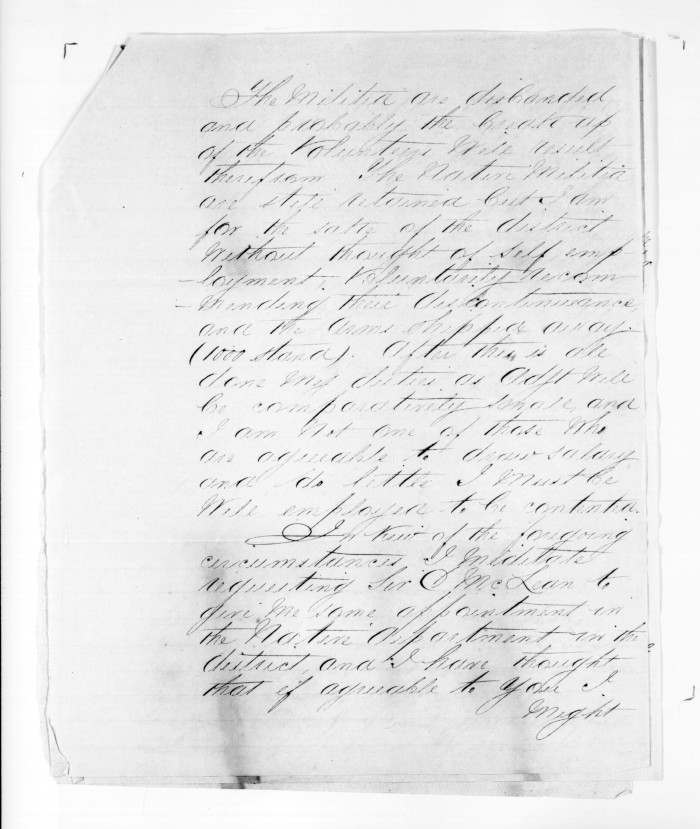 The Militia are disbanded
and probably the break up
of the Volunteers Will result
therefrom The Native Militia
are still retained but I am
for the sake of the district
Without thought of self emp
-loyment, Voluntarily recom
-mending their discontinuance,
and the arms shipped away.
(1000 stand). After this is all
done My duties as Adjt Will
be comparatively small, and
I am Not one of those Who
are agreeable to draw salary
and do little I Must be
Well employed to be contented.
In View of the foregoing
circumstances I Meditate
requesting Sir D McLean to
give Me some appointment in
the Native department in the
district, and I have thought
that if agreeable to you I
Might